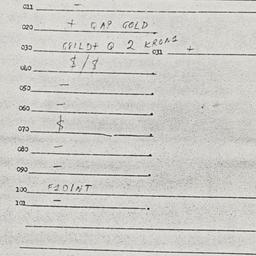 011 -
020 + GAP GOLD
030 GEILD+ Q 2 KRONA 031 +
040 $/$
050 -
060 -
070 $
080 -
090 -
100 FIOINT
101 -